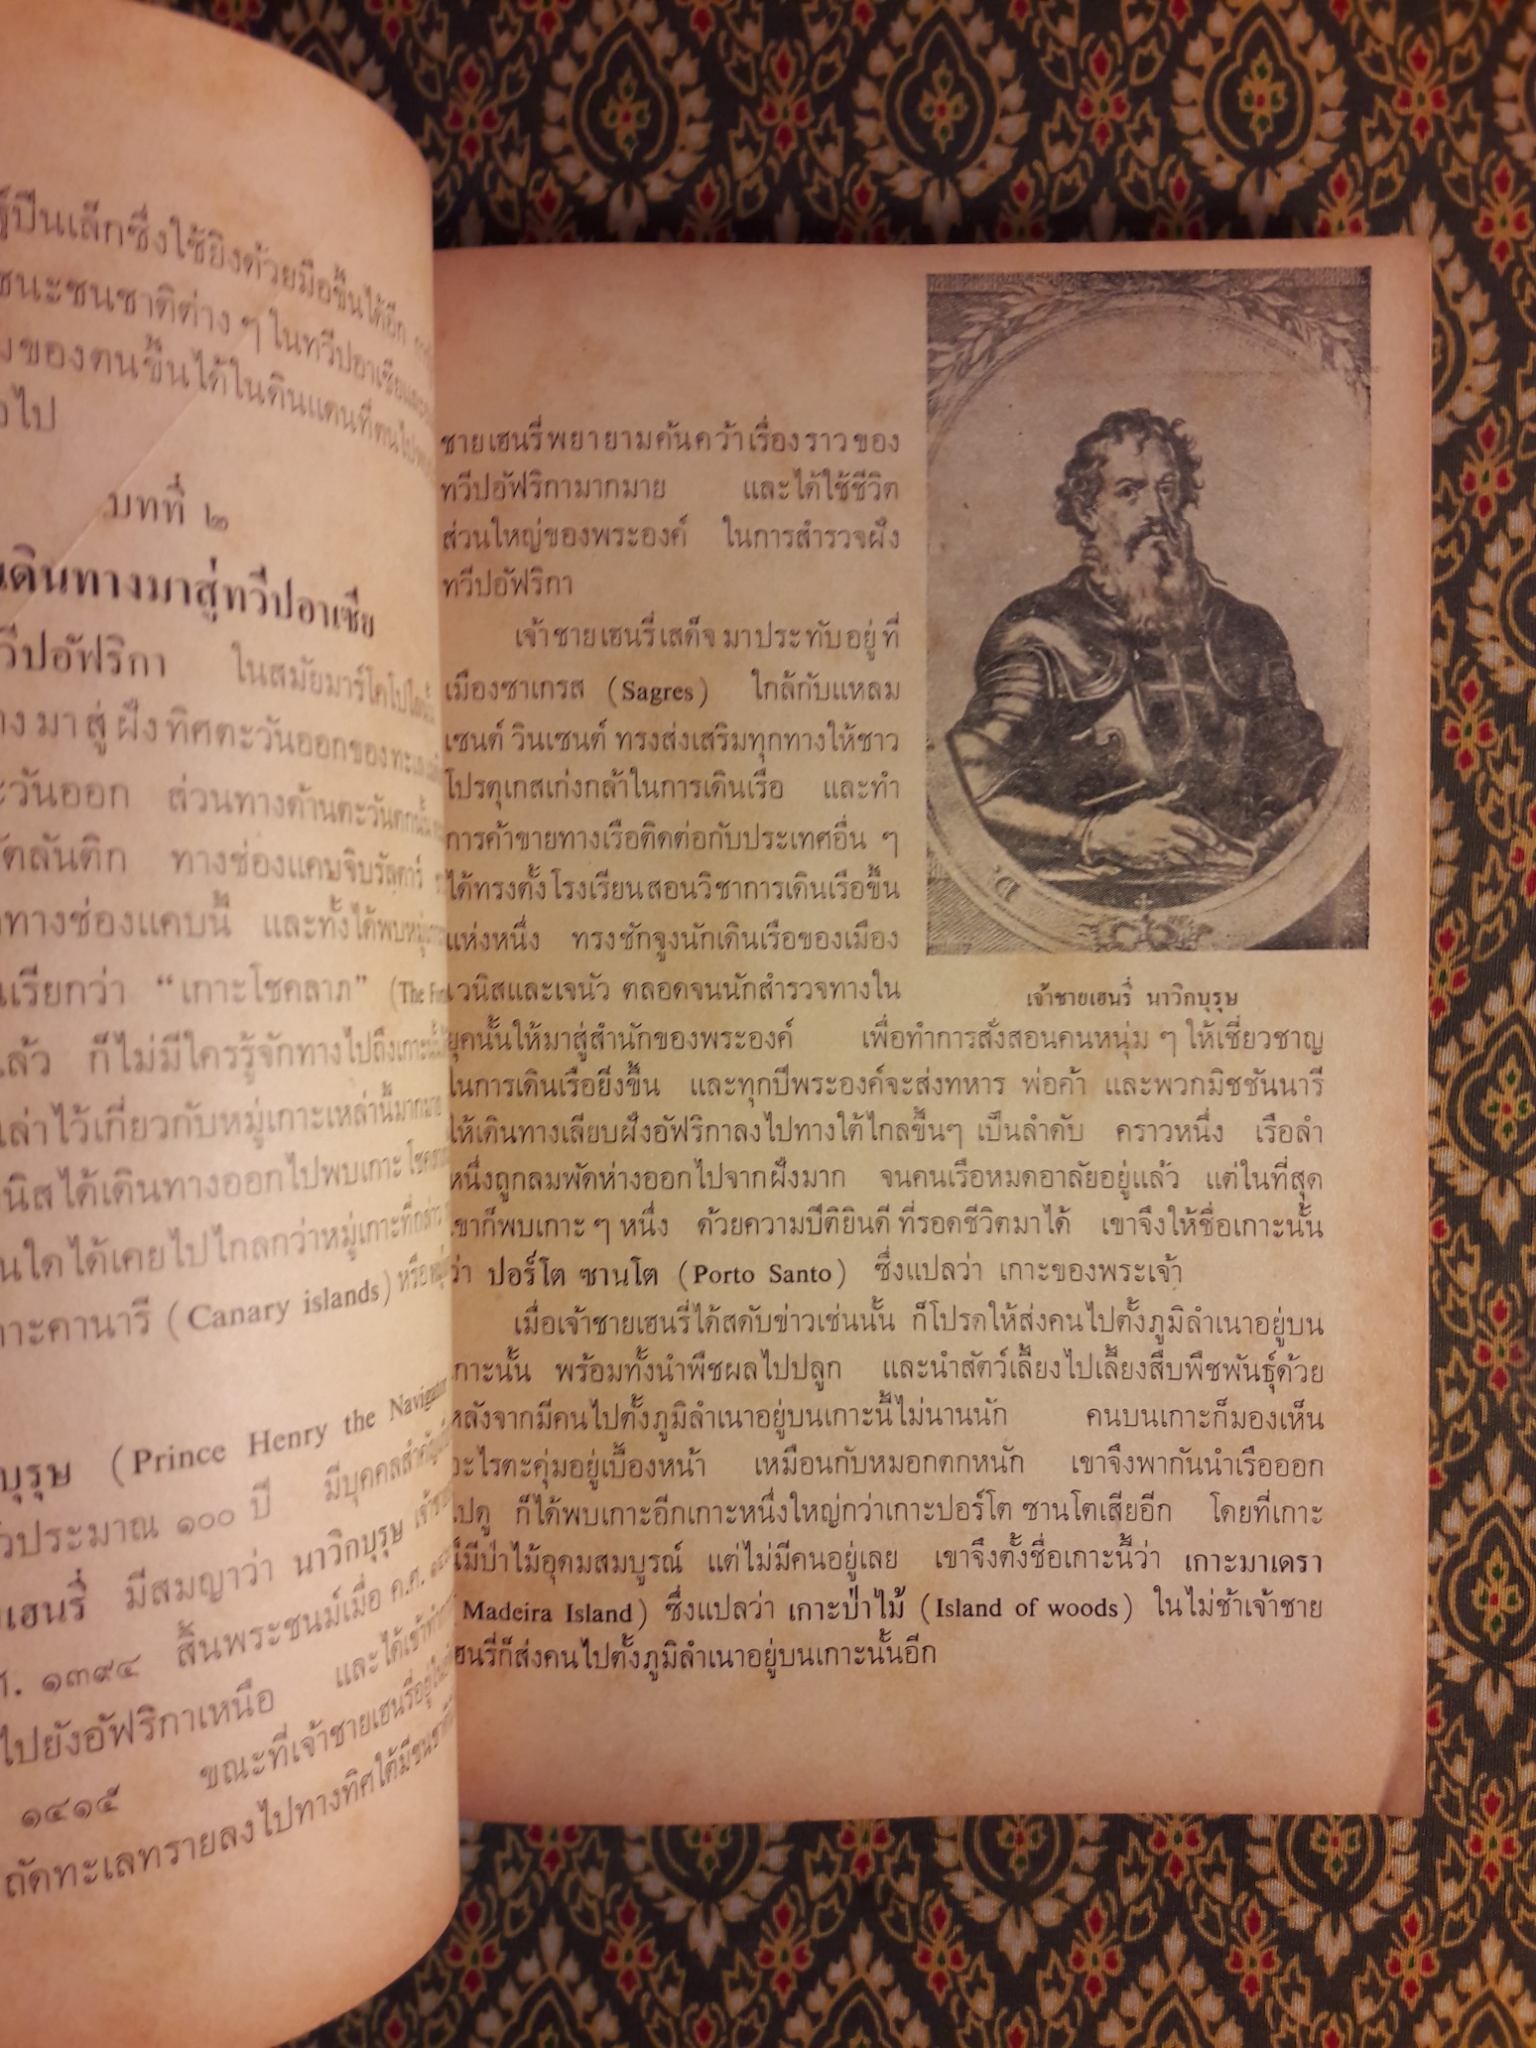 ปืนเล็กซึ่งใช้ยิงด้วยมือขึ้นได้อีก
ชนะชนชาติต่าง ๆ ในทวีปอาเซียและ
ของตนขึ้นได้ในดินแดนที่ตนไป
ไป
บทที่ ๒
เดินทางมาสู่ทวีปอาเซีย
ทวีปอัฟริกา ในสมัยมาร์โคโปโลนั้น
มาสู่ฝั่งทิศตะวันออกของทะเล
ตะวันออก ส่วนทางด้านตะวันตกนั้น
ทางช่องแคบจิบรัลตาร์
ทางช่องแคบนี้ และทั้งได้พบหมู่
เรียกว่า “เกาะโชคลาภ” (The
แล้ว ก็ไม่มีใครรู้จักทางไปถึงเกาะ
เล่าไว้เกี่ยวกับหมู่เกาะเหล่านี้มากมาย
ได้เดินทางออกไปพบเกาะโชค
ใดได้เคยไปไกลกว่าหมู่เกาะที่กล่าว
เกาะคานารี (Canary islands) หรือ
บุรุษ (Prince Henry the Navigator
ประมาณ ๑๐๐ ปี มีบุคคลสำคัญ
เฮนรี่ มีสมญาว่า นาวิกบุรุษ เจ้าชาย
ศ. ๑๓๙๔ สิ้นพระชนม์เมื่อ ค.ศ.
ไปยังอัฟริกาเหนือ และได้เข้าทำ
๑๔๑๕ ขณะที่เจ้าชายเฮนรี่อยู่ใน
ถัดทะเลทรายลงไปทางทิศใต้มีชนชาติ
ชายเฮนรี่พยายามค้นคว้าเรื่องราวของ
ทวีปอัฟริกามากมาย และได้ใช้ชีวิต
ส่วนใหญ่ของพระองค์ ในการสำรวจฝั่ง
ทวีปอัฟริกา
เจ้าชายเฮนรี่เสด็จมาประทับอยู่ที่
เมืองซาเกรส (Sagres) ใกล้กับแหลม
เซนต์ วินเซนต์ ทรงส่งเสริมทุกทางให้ชาว
โปรตุเกสเก่งกล้าในการเดินเรือ และทำ
การค้าขายทางเรือติดต่อกับประเทศอื่น ๆ
ได้ทรงตั้งโรงเรียนสอนวิชาการเดินเรือขึ้น
แห่งหนึ่ง ทรงชักจูงนักเดินเรือของเมือง
เวนิสและเจนัว ตลอดจนนักสำรวจทางใน
เจ้าชายเฮนรี่ นาวิกบุรุษ
ยุคนั้นให้มาสู่สำนักของพระองค์ เพื่อทำการสั่งสอนคนหนุ่ม ๆ ให้เชี่ยวชาญ
ในการเดินเรือยิ่งขึ้น และทุกปีพระองค์จะส่งทหาร พ่อค้า และพวกมิชชันนารี
ให้เดินทางเลียบฝั่งอัฟริกาลงไปทางใต้ไกลขึ้นๆ เป็นลำดับ คราวหนึ่ง เรือลำ
หนึ่งถูกลมพัดห่างออกไปจากฝั่งมาก จนคนเรือหมดอาลัยอยู่แล้ว แต่ในที่สุด
เขาก็พบเกาะ ๆ หนึ่ง ด้วยความปีติยินดีที่รอดชีวิตมาได้ เขาจึงให้ชื่อเกาะนั้น
ว่า ปอร์โต ซานโต (Porto Santo) ซึ่งแปลว่า เกาะของพระเจ้า
เมื่อเจ้าชายเฮนรี่ได้สดับข่าวเช่นนั้น ก็โปรดให้ส่งคนไปตั้งภูมิลำเนาอยู่บน
เกาะนั้น พร้อมทั้งนำพืชผลไปปลูก และนำสัตว์เลี้ยงไปเลี้ยงสืบพืชพันธุ์ด้วย
หลังจากมีคนไปตั้งภูมิลำเนาอยู่บนเกาะนี้ไม่นานนัก คนบนเกาะก็มองเห็น
อะไรตะคุ่มอยู่เบื้องหน้า เหมือนกับหมอกตกหนัก เขาจึงพากันนำเรือออก
ไปดู ก็ได้พบเกาะอีกเกาะหนึ่งใหญ่กว่าเกาะปอร์โต ซานโตเสียอีก โดยที่เกาะ
นี้มีป่าไม้อุดมสมบูรณ์ แต่ไม่มีคนอยู่เลย เขาจึงตั้งชื่อเกาะนี้ว่า เกาะมาเดรา
(Madeira Island) ซึ่งแปลว่า เกาะป่าไม้ (Island of woods) ในไม่ช้าเจ้าชาย
เฮนรี่ก็ส่งคนไปตั้งภูมิลำเนาอยู่บนเกาะนั้นอีก